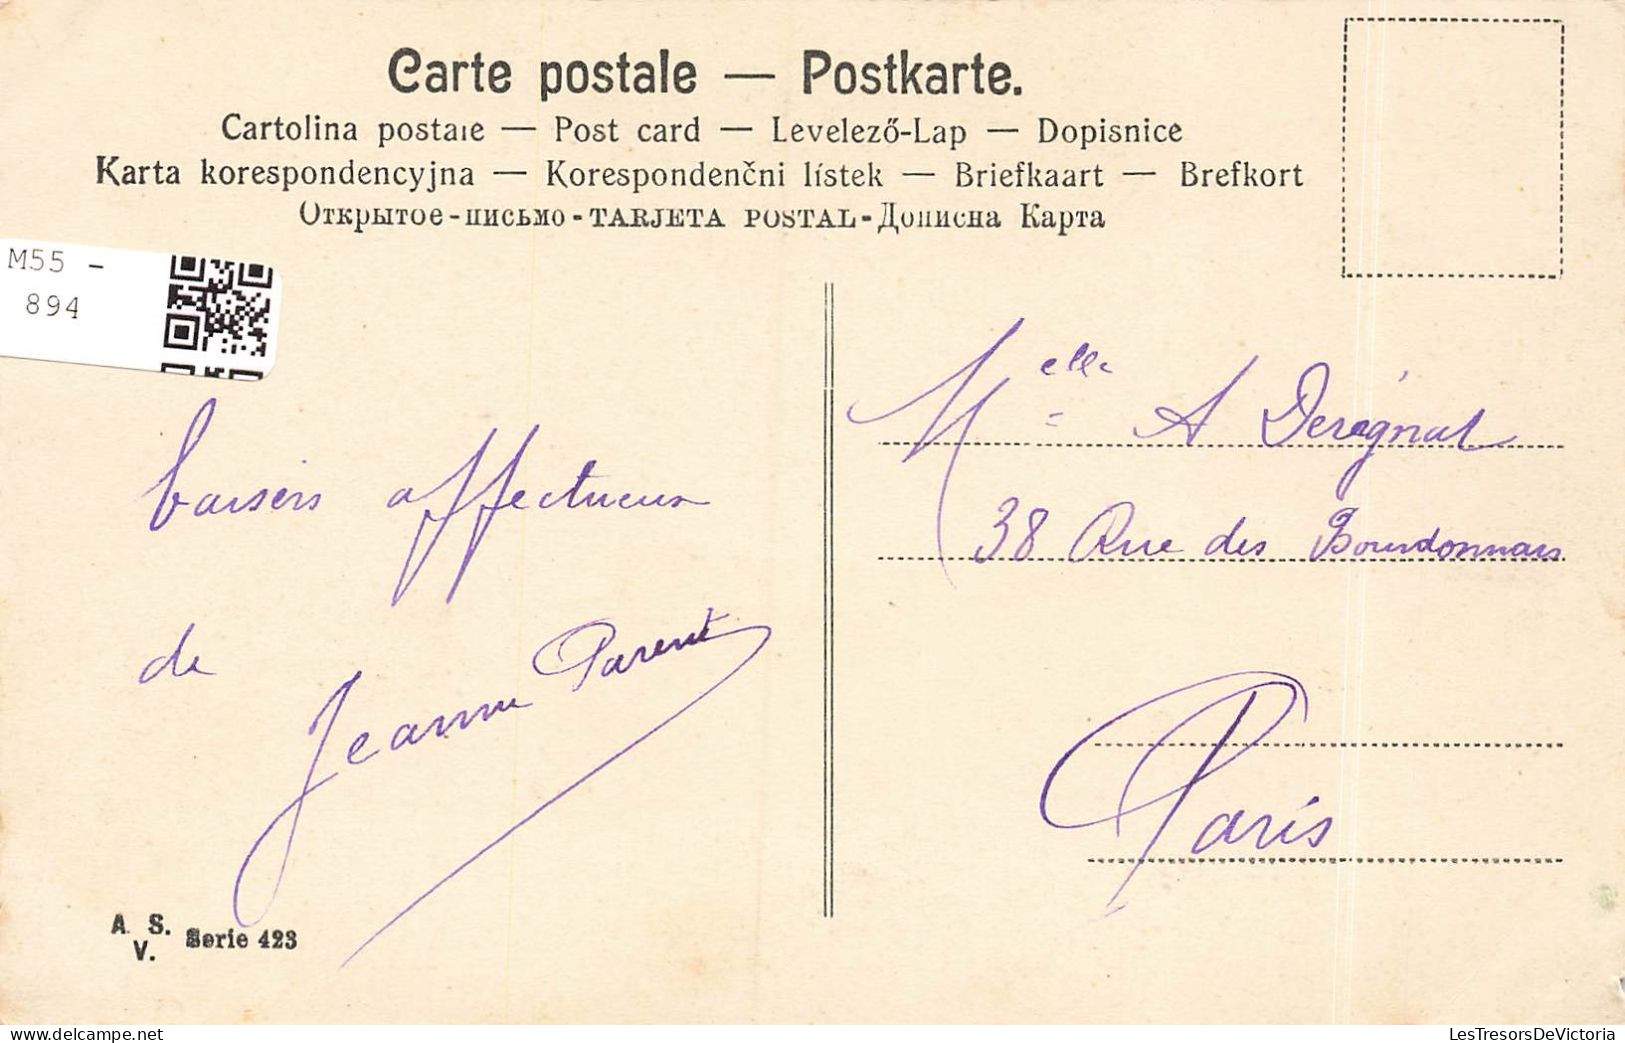 Carte postale — Postkarte.
Cartolina postale — Post card — Levelező-Lap — Dopisnice
Karta korespondencyjna — Korespondenčni lístek — Briefkaart — Brefkort
Открытое-письмо - TARJETA POSTAL - Дописна Карта
M55 -
894
baisers affectueux
de
Jeanne Parent
Melle A Derégnat
38 Rue des Bourdonnais
Paris
A. S.
V. Serie 423
LesTresorsDeVictoria